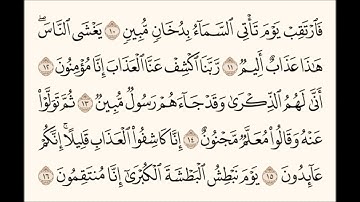 فَٱرْتَقِبْ يَوْمَ تَأْتِى ٱلسَّمَآءُ بِدُخَانٍ مُّبِينٍ ١٠ يَغْشَى ٱلنَّاسَ ۖ
هَٰذَا عَذَابٌ أَلِيمٌ ١١ رَّبَّنَا ٱكْشِفْ عَنَّا ٱلْعَذَابَ إِنَّا مُؤْمِنُونَ ١٢
أَنَّىٰ لَهُمُ ٱلذِّكْرَىٰ وَقَدْ جَآءَهُمْ رَسُولٌ مُّبِينٌ ١٣ ثُمَّ تَوَلَّوْا۟
عَنْهُ وَقَالُوا۟ مُعَلَّمٌ مَّجْنُونٌ ١٤ إِنَّا كَاشِفُوا۟ ٱلْعَذَابِ قَلِيلًا ۚ إِنَّكُمْ
عَآئِدُونَ ١٥ يَوْمَ نَبْطِشُ ٱلْبَطْشَةَ ٱلْكُبْرَىٰٓ إِنَّا مُنتَقِمُونَ ١٦